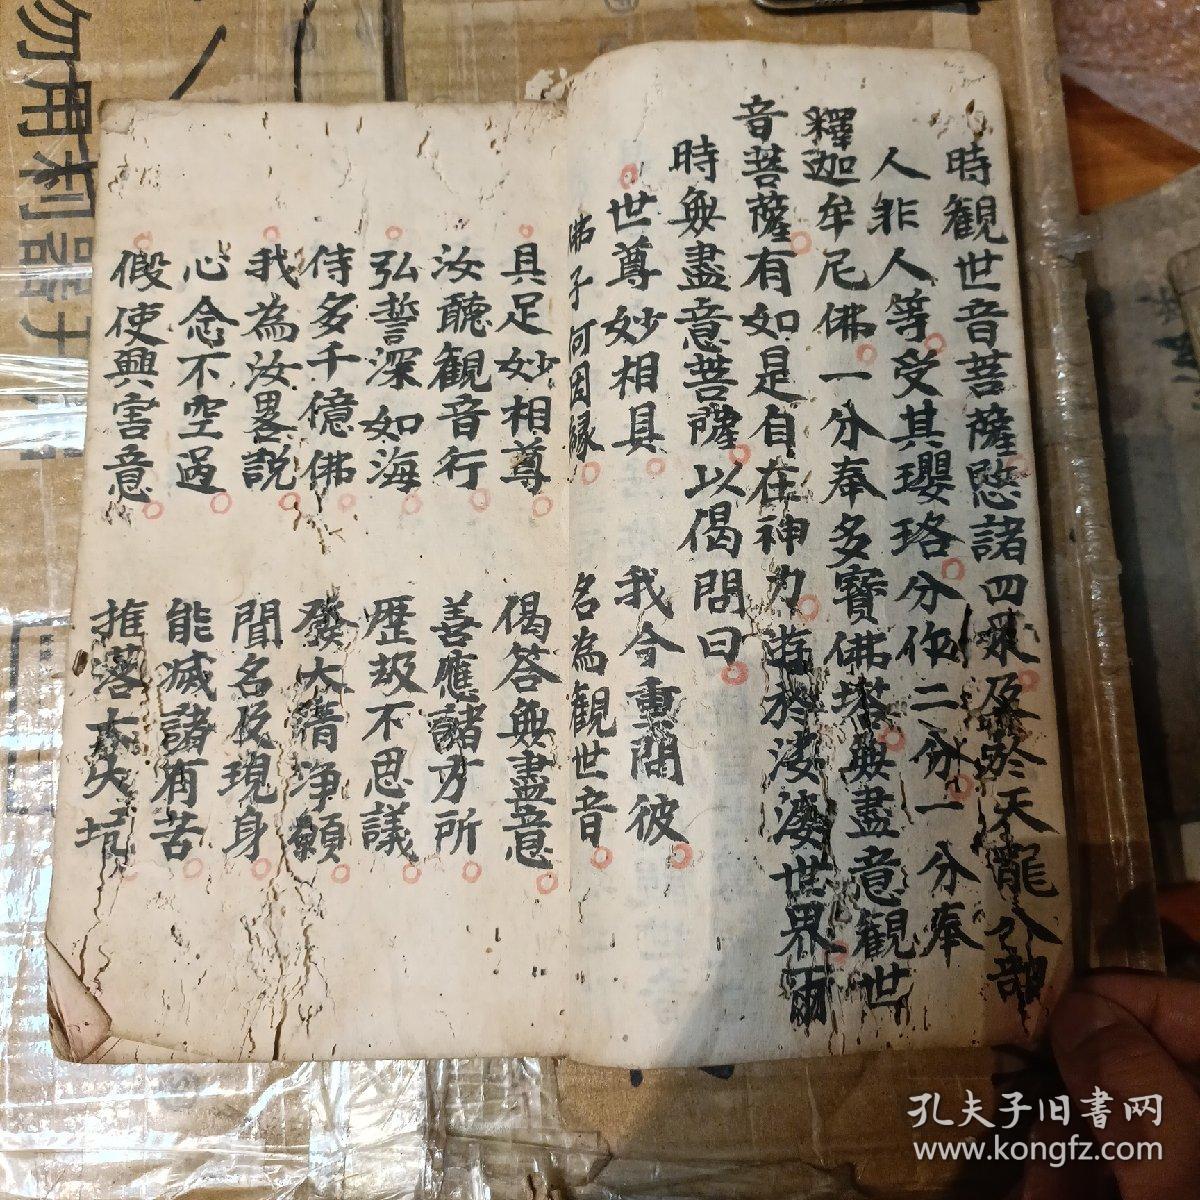 時觀世音菩薩愍諸四衆及於天龍八部
人非人等受其瓔珞分作二分一分奉
釋迦牟尼佛一分奉多寶佛塔無盡意觀世
音菩薩有如是自在神力遊於娑婆世界爾
時無盡意菩薩以偈問曰
世尊妙相具 我今重問彼
佛子何因緣 名為觀世音
具足妙相尊 偈答無盡意
汝聽觀音行 善應諸方所
弘誓深如海 歷刼不思議
侍多千億佛 發大清净願
我為汝畧説 聞名及現身
心念不空過 能滅諸有苦
假使興害意 推落大火坑
勿用利器
孔夫子旧書网
www.kongfz.com